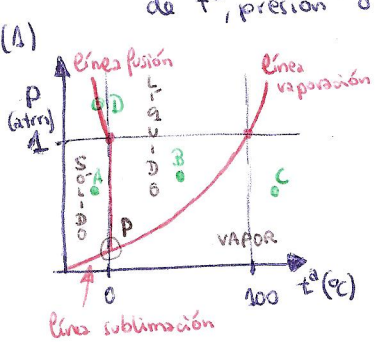 de tª, presión o
(1)
línea fusión
línea
vaporación
P
(atm)
1
D
LÍQUIDO
SÓLIDO
A
B
C
P
VAPOR
0
100
tª (ºC)
línea sublimación